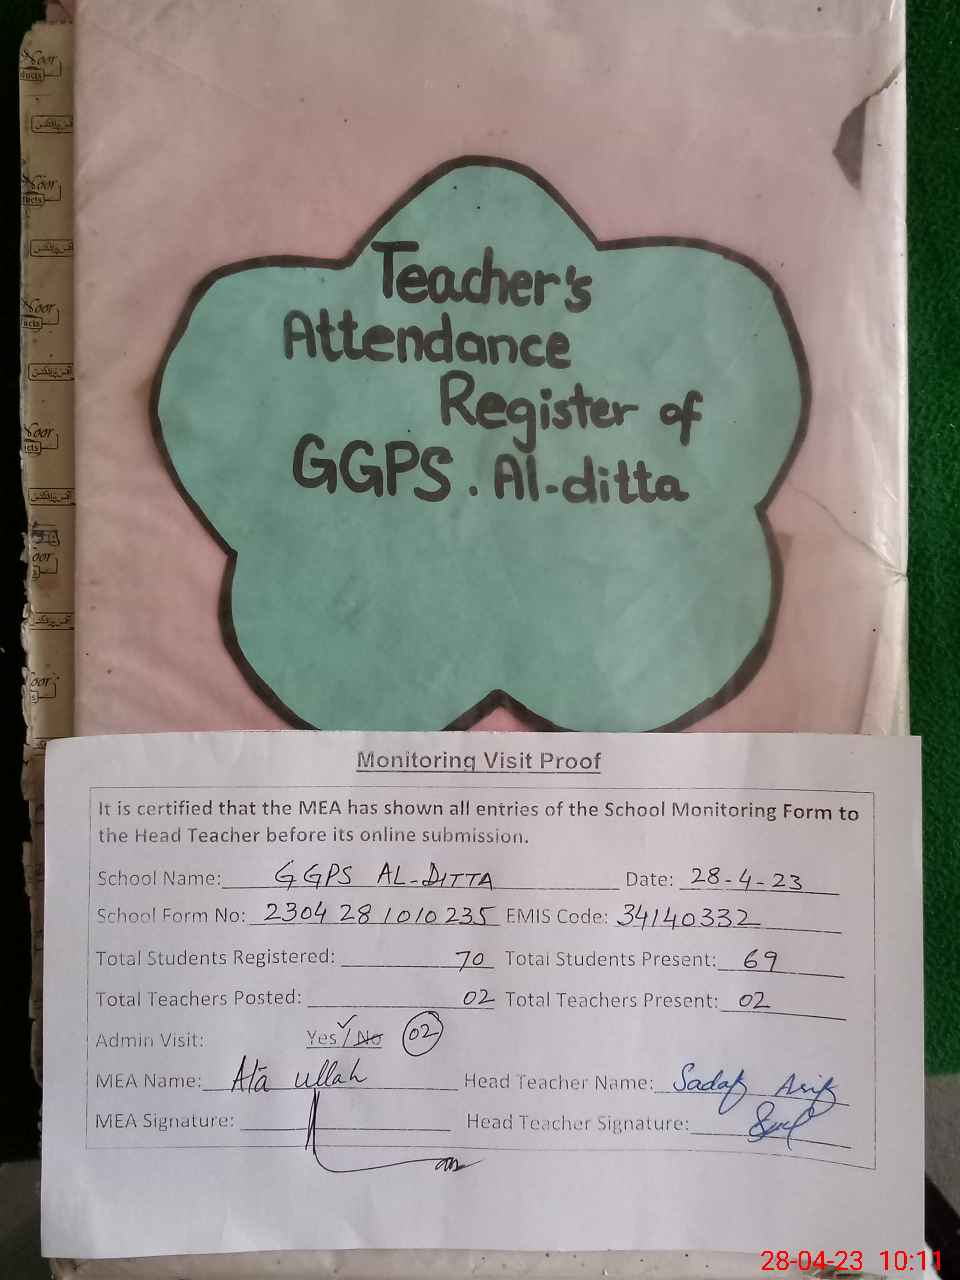 Teacher's
Attendance
Register of
GGPS. Al-ditta
Monitoring Visit Proof
It is certified that the MEA has shown all entries of the School Monitoring Form to
the Head Teacher before its online submission.
School Name: GGPS AL-DITTA Date: 28-4-23
School Form No: 2304281010235 EMIS Code: 34140332
Total Students Registered: 70 Total Students Present: 69
Total Teachers Posted: 02 Total Teachers Present: 02
Admin Visit: Yes✓/No 02
MEA Name: Ata ullah Head Teacher Name: Sadaf Arif
MEA Signature: Head Teacher Signature:
28-04-23 10:11